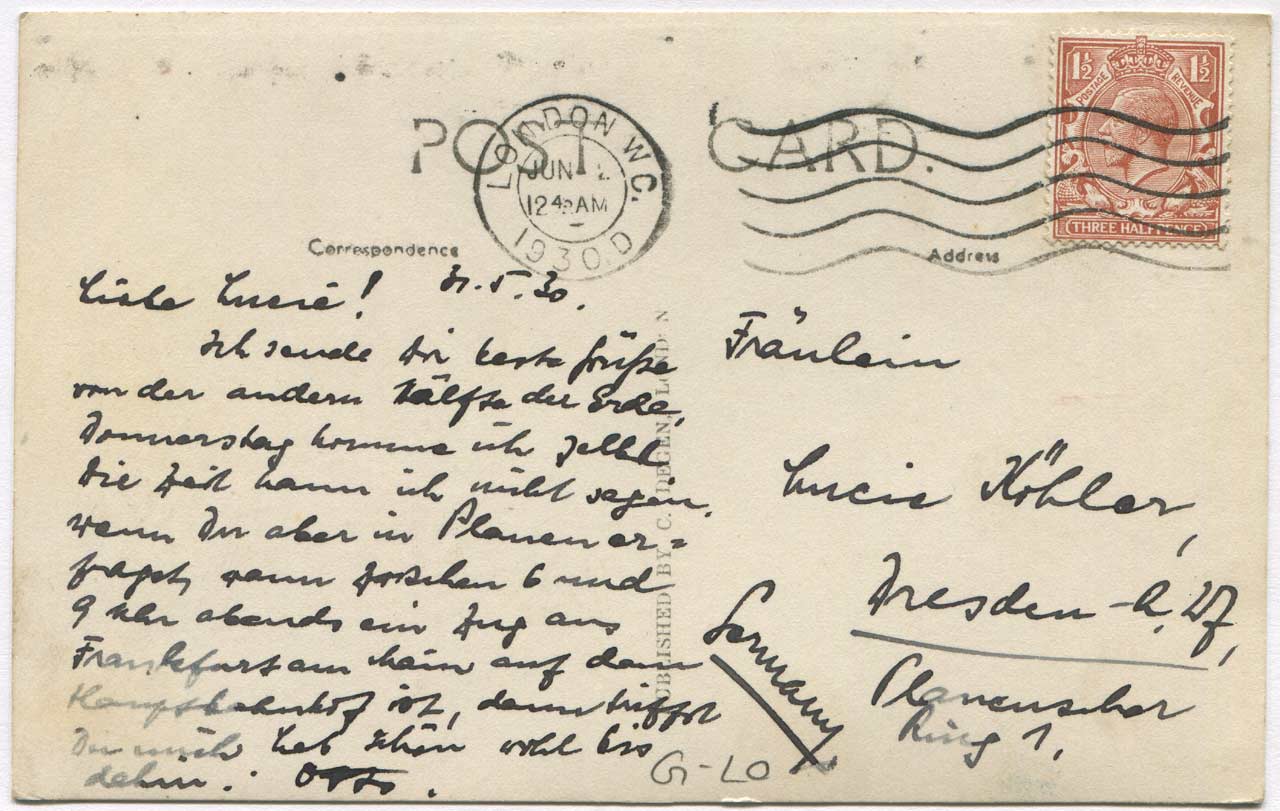 POST CARD.
LONDON W.C.
JUN 2
12 45 AM
1930. D
1½ 1½
POSTAGE REVENUE
THREE HALFPENCE
Correspondence
Address
Liebe Lucie! 31.5.30.
Ich sende Dir beste Grüße
von der andern Hälfte der Erde,
Donnerstag komme ich selbst
Die Zeit kann ich nicht sagen,
wenn Du aber in Plauen er=
fragst, wann zwischen 6 und
9 Uhr abends ein Zug aus
Frankfurt am Main auf dem
Hauptbahnhof ist, dann triffst
Du mich Leb schön wohl bis
dahin. Otto.
PUBLISHED BY C. DEGEN, LONDON
Fräulein
Lucie Köhler,
Dresden-A, 27,
Plauenscher
Ring 1,
Germany
G-LO